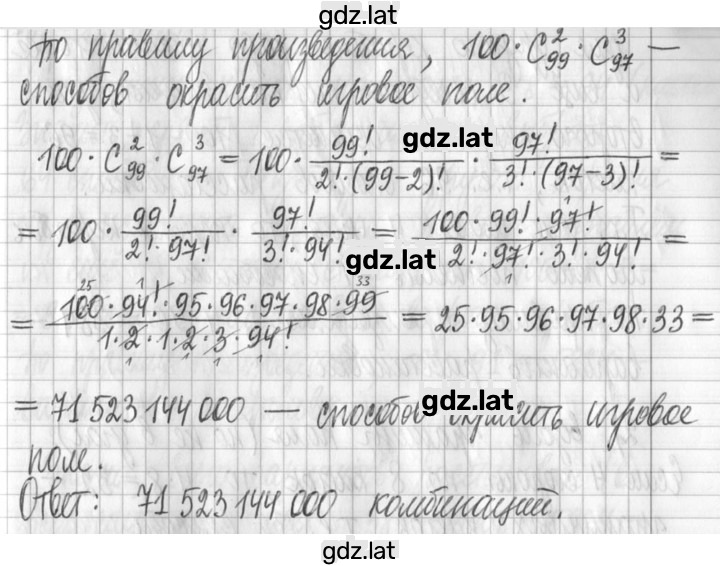 gdz.lat
По правилу произведения, 100 · C²₉₉ · C³₉₇ —
способов окрасить игровое поле.
gdz.lat
100 · C²₉₉ · C³₉₇ = 100 · 99! / 2! · (99-2)! · 97! / 3! · (97-3)! =
= 100 · 99! / 2! · 97! · 97! / 3! · 94! = 100 · 99! · 97! 1 / 2! · 97! 1 · 3! · 94! =
gdz.lat
= 100 25 · 94! 1 · 95 · 96 · 97 · 98 · 99 33 / 1 · 2 1 · 1 · 2 1 · 3 1 · 94! 1 = 25 · 95 · 96 · 97 · 98 · 33 =
gdz.lat
= 71 523 144 000 — способов игровое
поле.
Ответ: 71 523 144 000 комбинаций.
gdz.lat